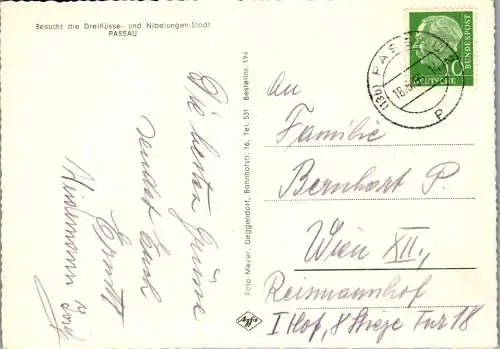 Besucht die Dreiflüsse- und Nibelungen-Stadt
PASSAU
Die besten Grüsse
sendet Euch
Ernstl
Heidemann Josef
Foto Meyer, Deggendorf, Bahnhofstr. 16, Tel. 531 Bestellnr. 594
Agfa
(13b) PASSAU
18.
P
DEUTSCHE BUNDESPOST
10
An
Familie
Bernhart P.
Wien XII.,
Reismannhof
I Hof, 8 Stiege Tür 18